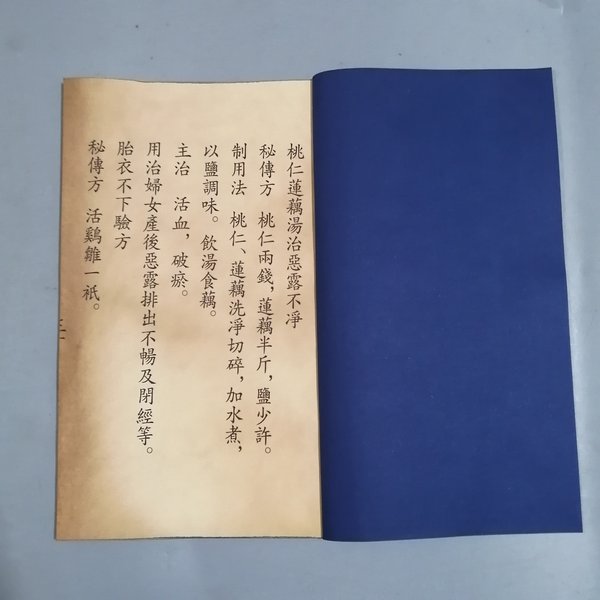 桃仁蓮藕湯治惡露不凈
秘傳方　桃仁兩錢，蓮藕半斤，鹽少許。
制用法　桃仁、蓮藕洗淨切碎，加水煮，
以鹽調味。飲湯食藕。
主治　活血，破瘀。
用治婦女產後惡露排出不暢及閉經等。
胎衣不下驗方
秘傳方　活鷄雛一祇。